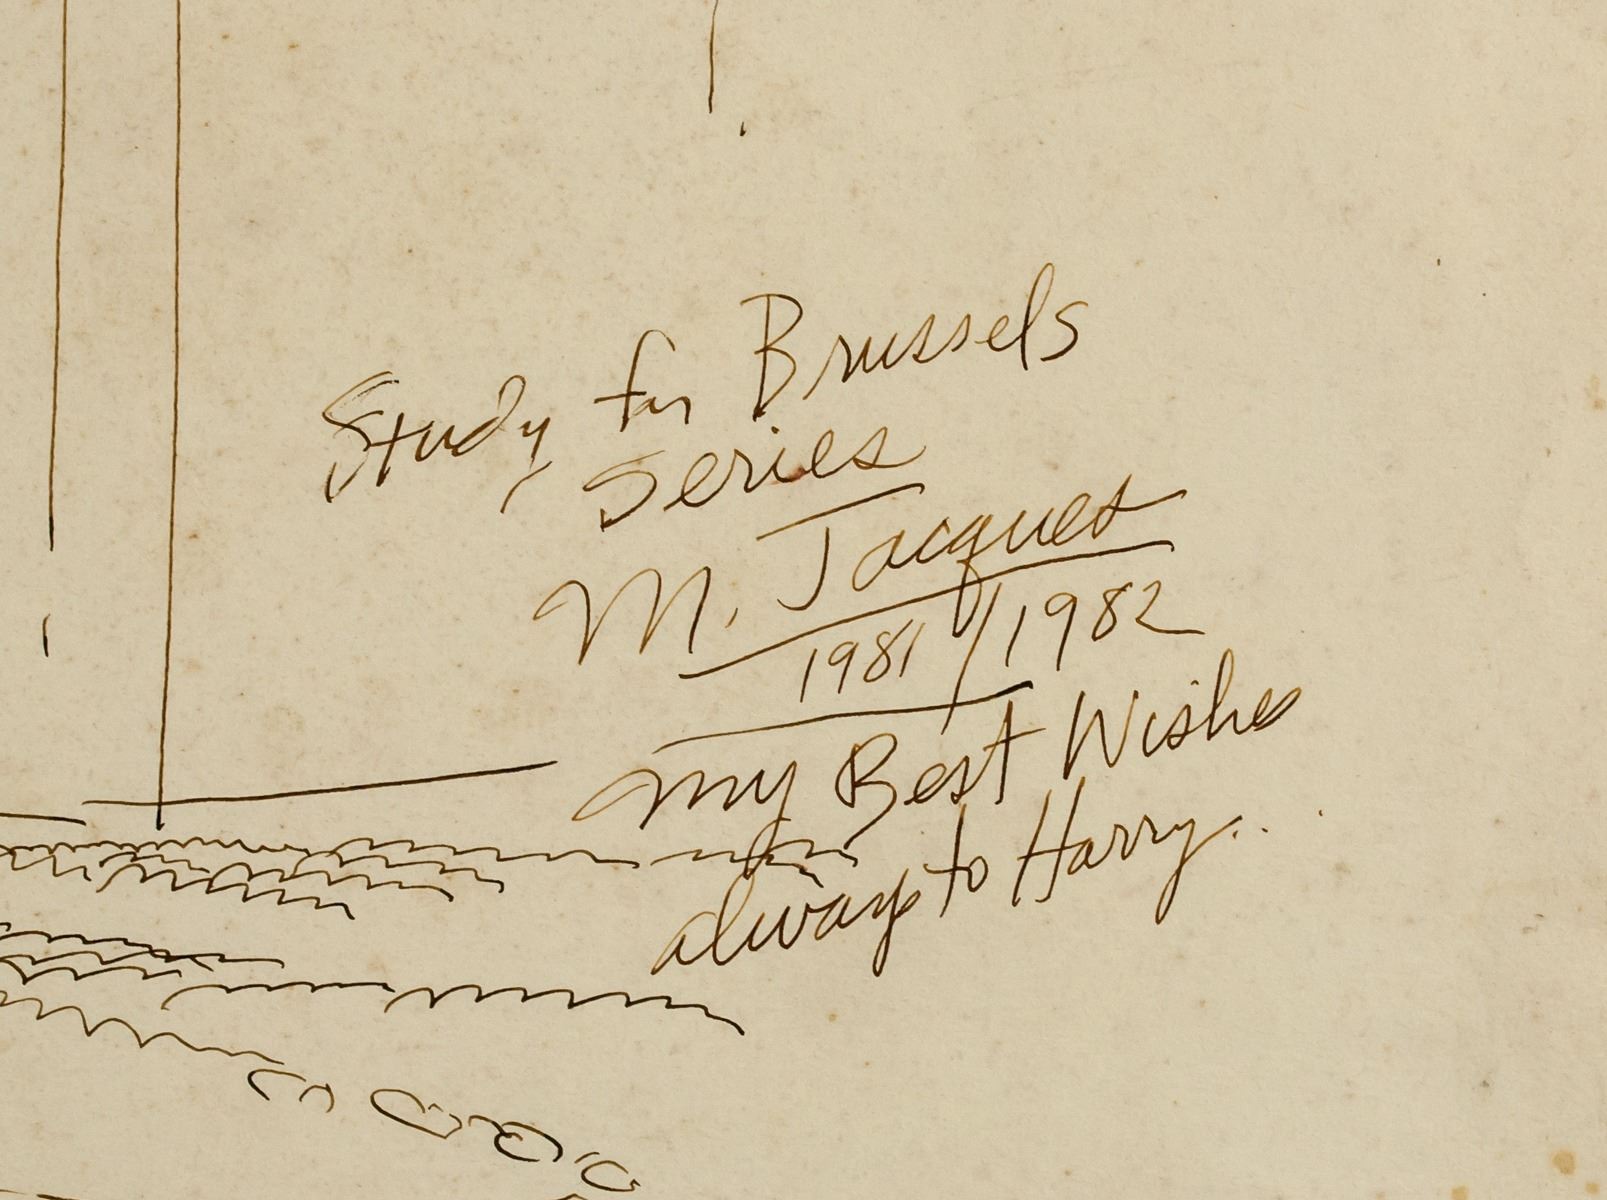 Study for Brussels
Series
M. Jacques
1981/1982
my Best Wishes
always to Harry..